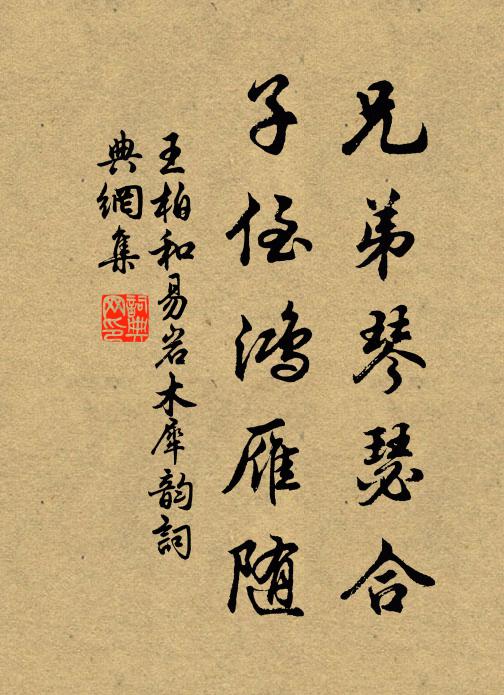 兄弟琴瑟合
子侄鸿雁随
王柏和易岩木犀韵詞
典網集
詞典
网印